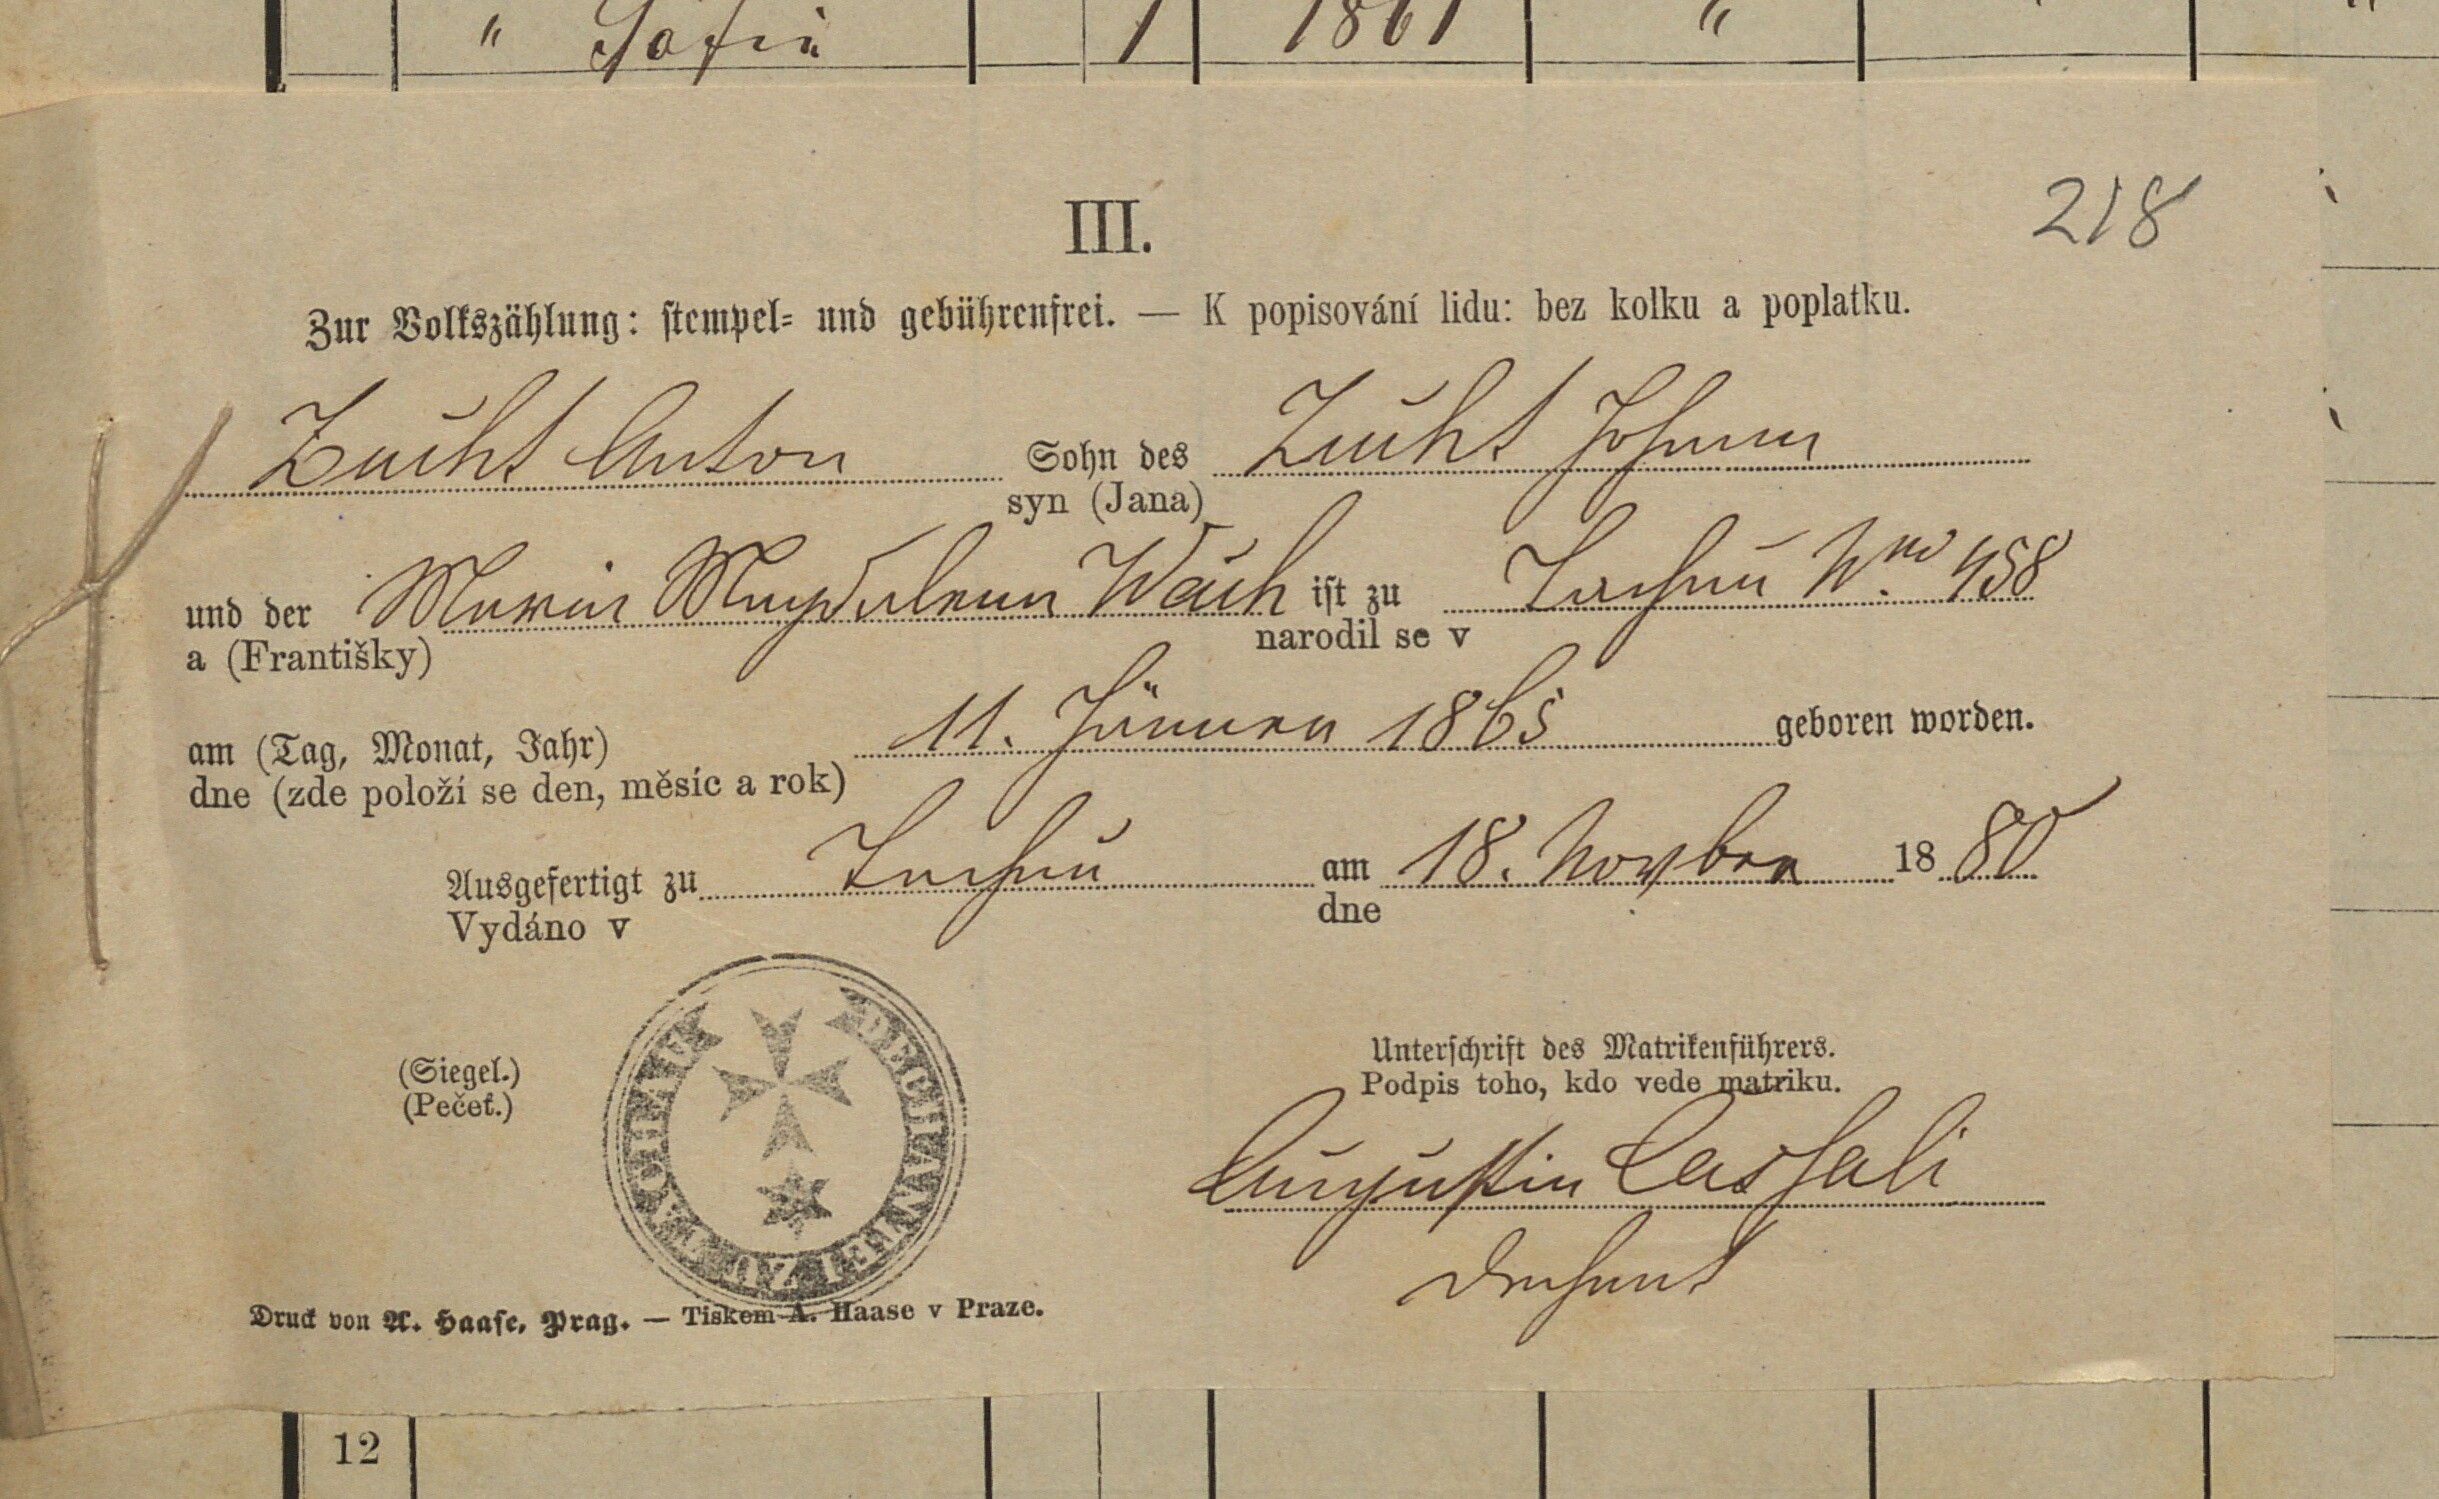 " Sofie 1 1861 "
218
III.
Zur Volkszählung: stempel- und gebührenfrei. — K popisování lidu: bez kolku a poplatku.
Zucht Anton Sohn des Zucht Johann
syn (Jana)
und der Maria Magdalena Wach ist zu Tachau Nro 458
a (Františky) narodil se v
am (Tag, Monat, Jahr) 11. Jänner 1865 geboren worden.
dne (zde položí se den, měsíc a rok)
Ausgefertigt zu Tachau am 18. Novber 1880
Vydáno v dne
(Siegel.)
(Pečeť.)
DECHANTEI ZU TACHAU
Unterschrift des Matrikenführers.
Podpis toho, kdo vede matriku.
Augustin Cassali
Dechant
Druck von A. Haase, Prag. — Tiskem A. Haase v Praze.
12